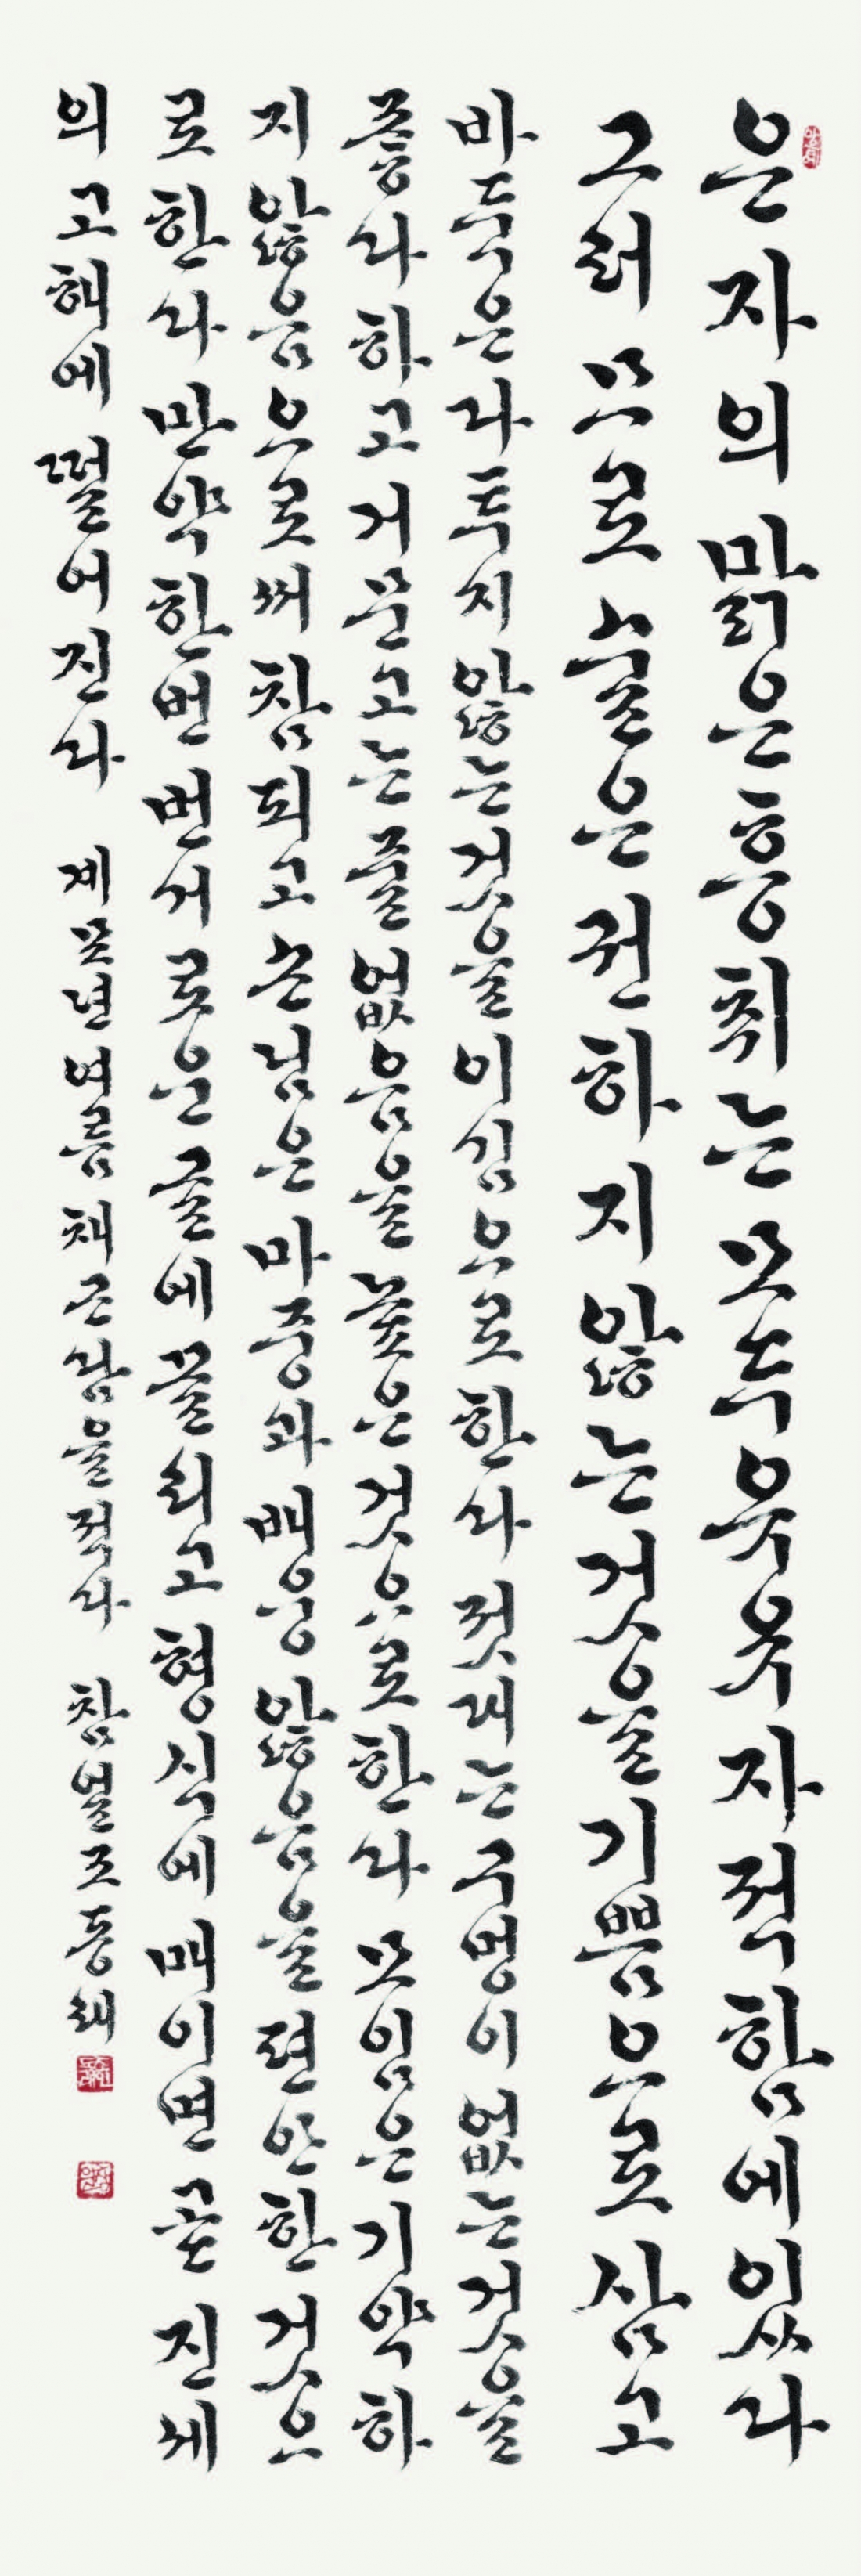 은자의 맑은 흥취는 모두 유유자적함에 있다
그러므로 술은 권하지 않는 것을 기쁨으로 삼고
바둑은 다투지 않는 것을 이김으로 한다 젓대는 구멍이 없는 것을
좋다 하고 거문고는 줄 없음을 높은 것으로 한다 모임은 기약하
지 않음으로써 참되고 손님은 마중과 배웅 않음을 편안한 것으
로 한다 만약 한번 번거로운 글에 끌리고 형식에 매이면 곧 진세
의 고해에 떨어진다 계묘년 여름 채근담을 적다